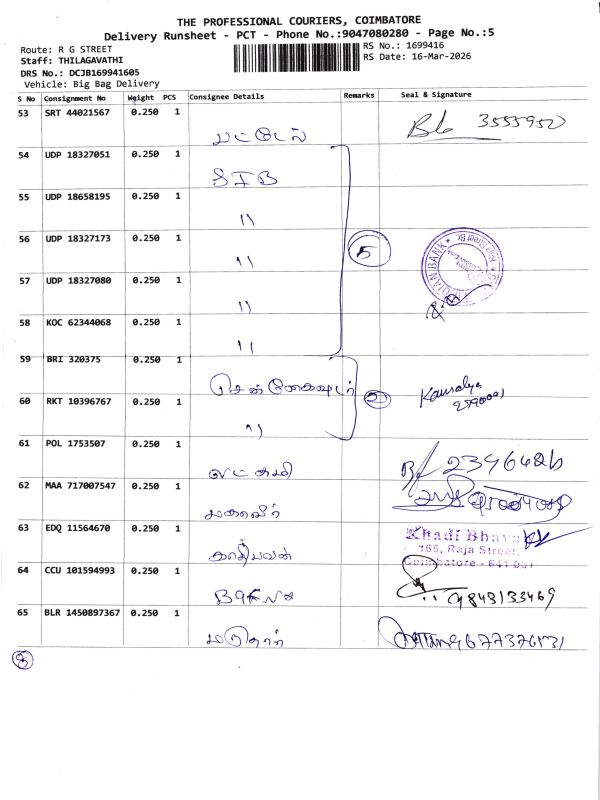 THE PROFESSIONAL COURIERS, COIMBATORE
Delivery Runsheet - PCT - Phone No.:9047080280 - Page No.:5
Route: R G STREET
RS No.: 1699416
Staff: THILAGAVATHI
RS Date: 16-Mar-2026
DRS No.: DCJB169941605
Vehicle: Big Bag Delivery
S No Consignment No Weight PCS Consignee Details Remarks Seal & Signature
53 SRT 44021567 0.250 1 3555950
54 UDP 18327051 0.250 1 SIB
55 UDP 18658195 0.250 1 "
56 UDP 18327173 0.250 1 " 5
57 UDP 18327080 0.250 1 "
58 KOC 62344068 0.250 1 "
59 BRI 320375 0.250 1
60 RKT 10396767 0.250 1 " 2 Kausalya
61 POL 1753507 0.250 1 லட்சுமி
62 MAA 717007547 0.250 1 மகாவீர்
63 EDQ 11564670 0.250 1 Khadi Bhavan
165, Raja Street,
Coimbatore - 641 001
64 CCU 101594993 0.250 1 9843133469
65 BLR 1450897367 0.250 1